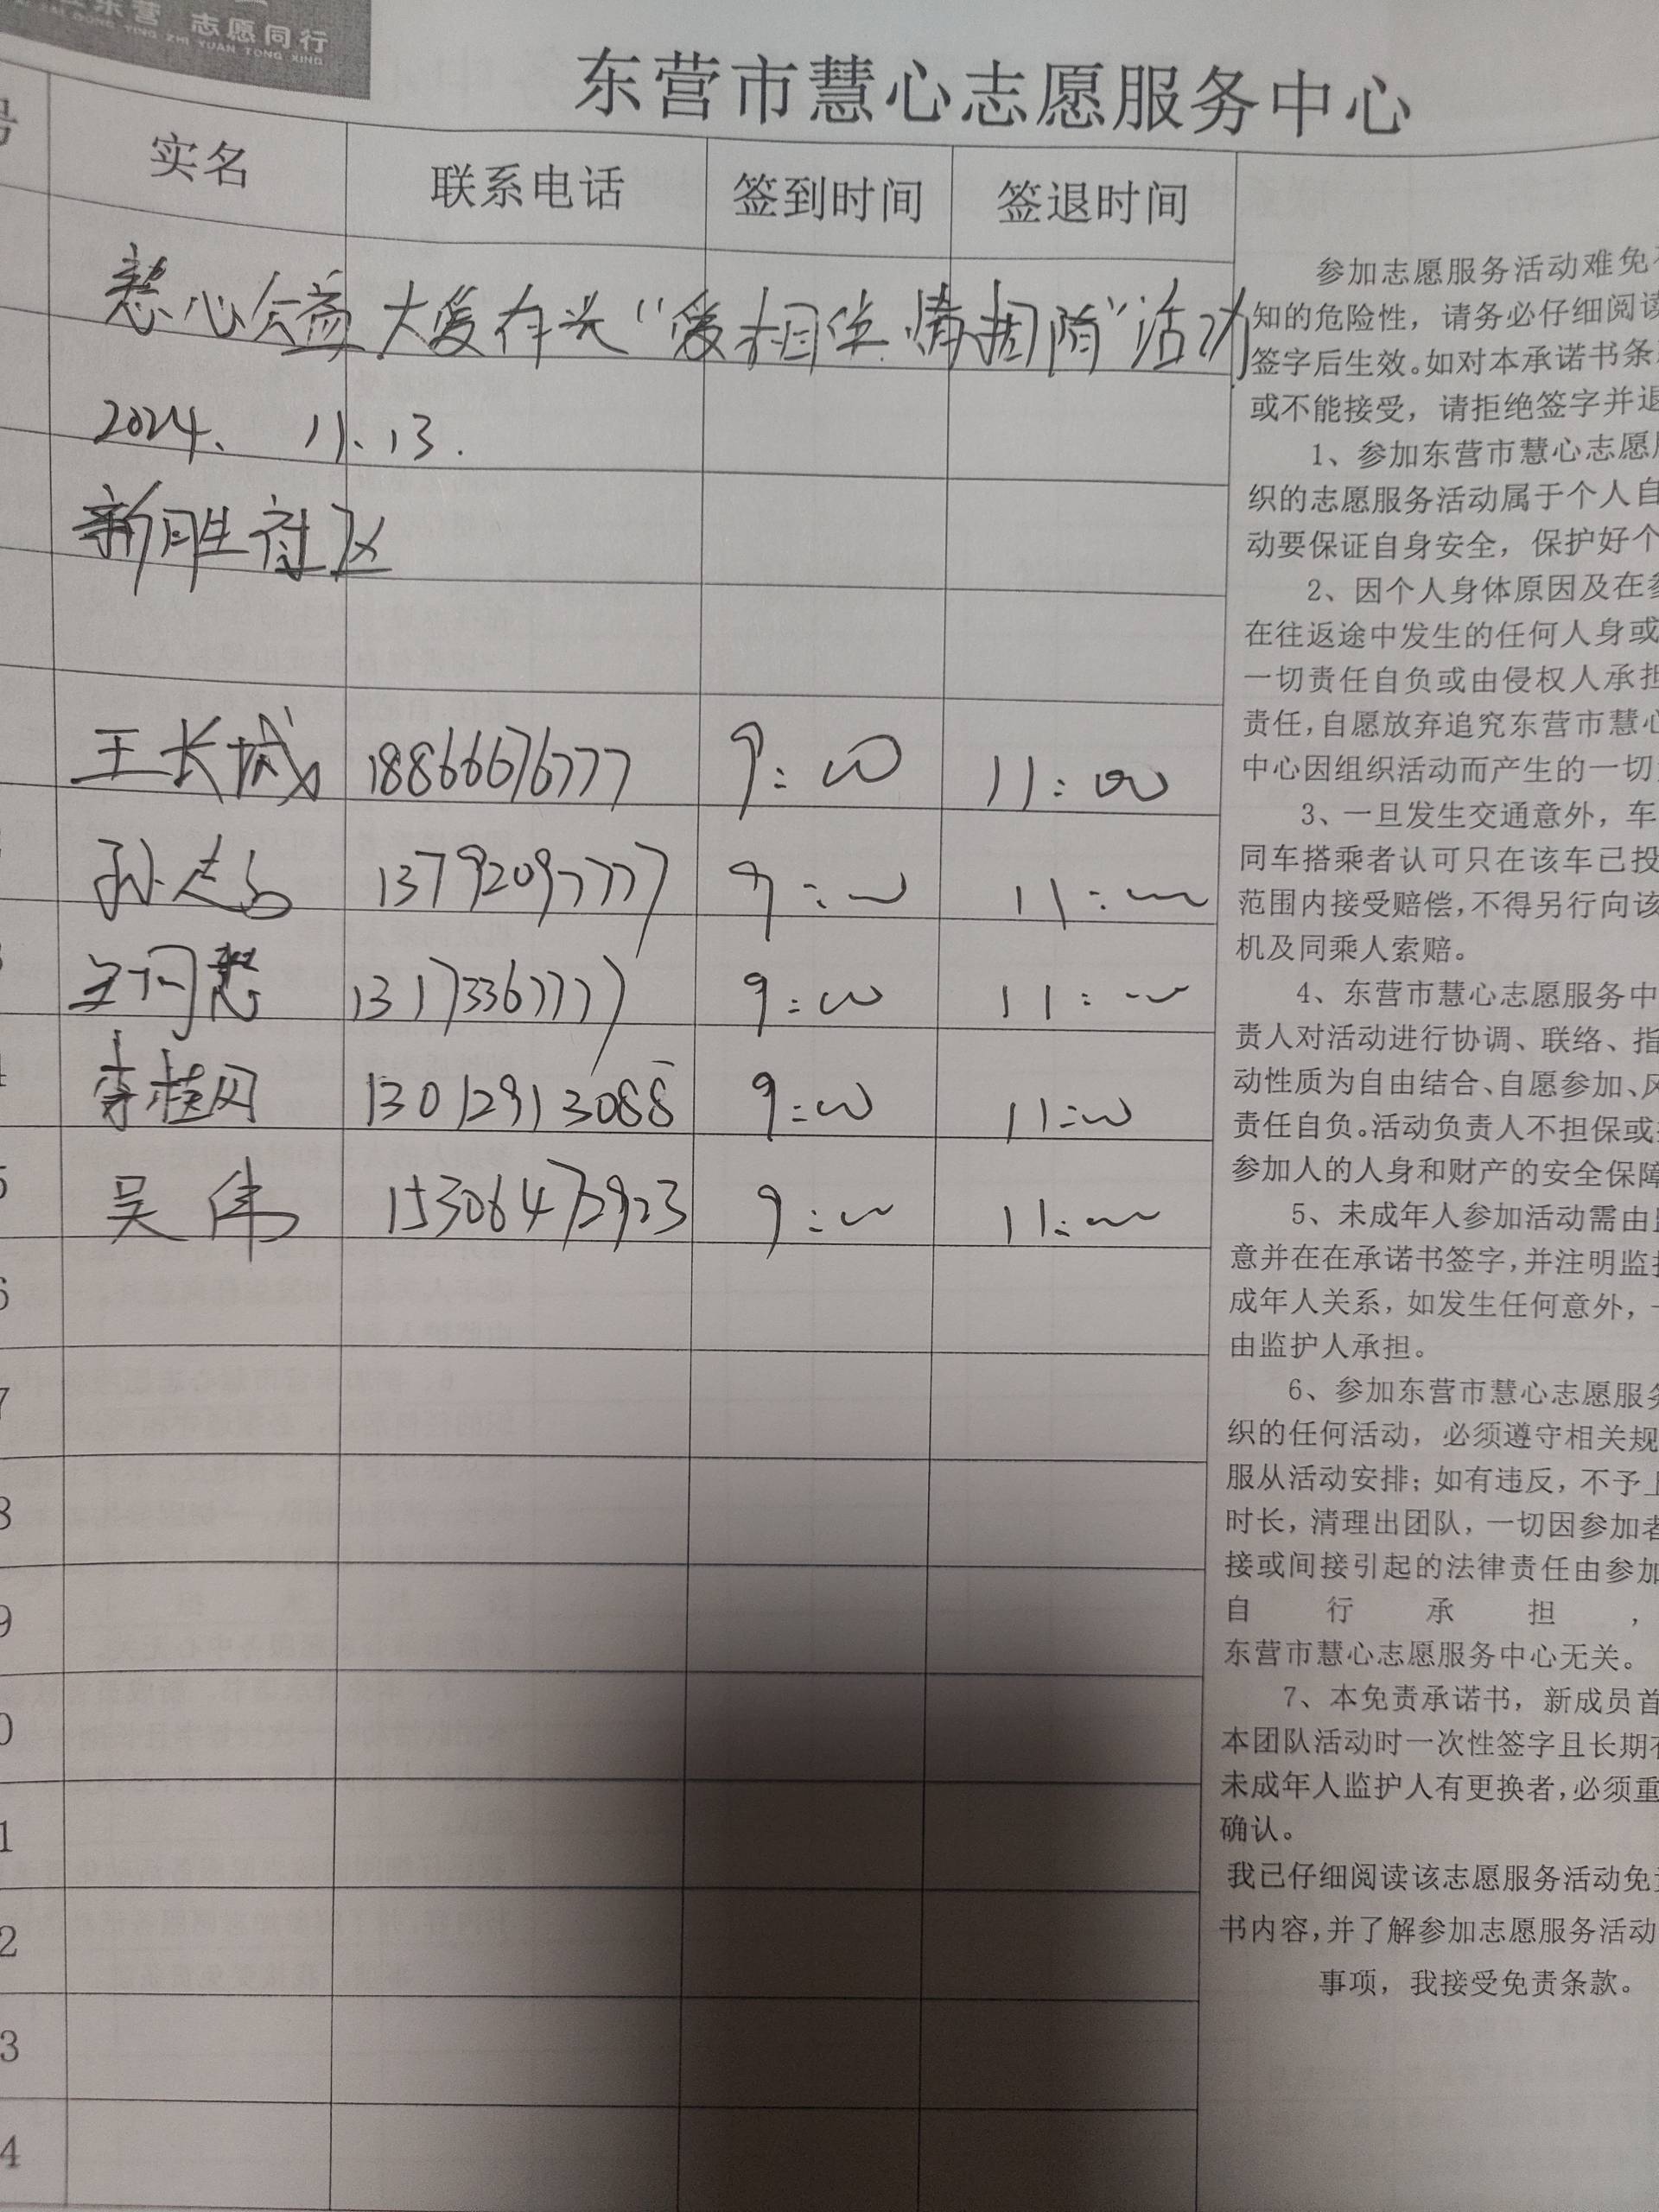 东营 志愿同行
DONG YING ZHI YUAN TONG XING
东营市慧心志愿服务中心
号 实名 联系电话 签到时间 签退时间
慧心公益 大爱有光“爱相伴 情相随”活动
2024、 11.13.
新胜社区
王长城 18866676777 9:00 11:00
孙志 13792097777 9:00 11:00
慧 13173367777 9:00 11:00
李桂 13012913088 9:00 11:00
5 吴伟 15306472923 9:00 11:00
6
7
8
9
0
1
2
3
4
参加志愿服务活动难免
知的危险性，请务必仔细阅读
签字后生效。如对本承诺书条
或不能接受，请拒绝签字并退
1、参加东营市慧心志愿
织的志愿服务活动属于个人自
动要保证自身安全，保护好个
2、因个人身体原因及在参
在往返途中发生的任何人身或
一切责任自负或由侵权人承担
责任，自愿放弃追究东营市慧心
中心因组织活动而产生的一切
3、一旦发生交通意外，车
同车搭乘者认可只在该车已投
范围内接受赔偿，不得另行向该
机及同乘人索赔。
4、东营市慧心志愿服务中
责人对活动进行协调、联络、指
动性质为自由结合、自愿参加、风
责任自负。活动负责人不担保或
参加人的人身和财产的安全保障
5、未成年人参加活动需由
意并在在承诺书签字，并注明监
成年人关系，如发生任何意外，
由监护人承担。
6、参加东营市慧心志愿服务
织的任何活动，必须遵守相关规
服从活动安排；如有违反，不予上
时长，清理出团队，一切因参加者
接或间接引起的法律责任由参加
自行承担，
东营市慧心志愿服务中心无关。
7、本免责承诺书，新成员首
本团队活动时一次性签字且长期
未成年人监护人有更换者，必须重
确认。
我已仔细阅读该志愿服务活动免
书内容，并了解参加志愿服务活动
事项，我接受免责条款。